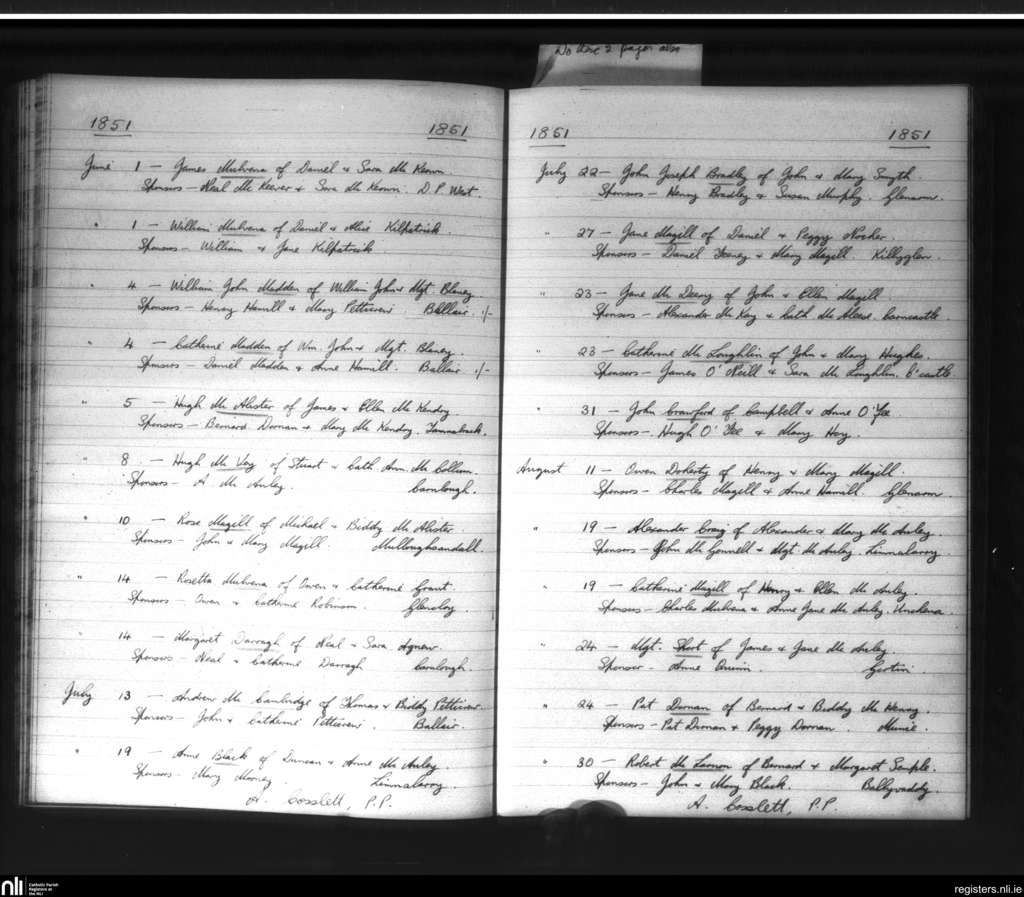 No these 2 pages also
1851 1851
June 1 — James Mulvena of Daniel & Sara Mc Keown.
Sponsors — Neal Mc Keever & Sara Mc Keown. D.P. West.
" 1 — William Mulvena of Daniel & Alice Kilpatrick
Sponsors — William & Jane Kilpatrick
" 4 — William John Madden of William John & Mgt. Blaney.
Sponsors — Henry Hamill & Mary Petticrew Ballair :/-
" 4 — Catherine Madden of Wm. John & Mgt. Blaney.
Sponsors — Daniel Madden & Anne Hamill. Ballair :/-
" 5 — Hugh Mc Alister of James & Ellen Mc Kendry
Sponsors — Bernard Dornan & Mary Mc Kendry.
" 8 — Hugh Mc Vey of Stuart & Cath Ann Mc Collum.
Sponsors — A Mc Auley. Carnlough.
" 10 — Rose Magill of Michael & Biddy Mc Alister.
Sponsors — John & Mary Magill. Mulloughsandall.
" 14 — Rosetta Mulvena of Owen & Catherine Grant.
Sponsors — Owen & Catherine Robinson. Glencloy.
" 14 — Margaret Darragh of Neal & Sara Agnew.
Sponsors — Neal & Catherine Darragh Carnlough.
July 13 — Andrew Mc Cambridge of Thomas & Biddy Petticrew.
Sponsors — John & Catherine Petticrew. Ballair.
" 19 — Anne Black of Duncan & Anne Mc Auley.
Sponsors — Mary Mooney. Linmalarry.
A. Cosslett, P.P.
1851 1851
July 22 — John Joseph Bradley of John & Mary Smyth
Sponsors — Henry Bradley & Susan Murphy. Glenarm.
" 27 — Jane Magill of Daniel & Peggy Nocher.
Sponsors — Daniel Feeney & Mary Magill. Killyglen.
" 23 — Jane Mc Deeny of John & Ellen Magill
Sponsors — Alexander Mc Kay & Cath Mc Aleese. Carncastle.
" 23 — Catherine Mc Loughlin of John & Mary Hughes.
Sponsors — James O'Neill & Sara Mc Loughlin. C'castle.
" 31 — John Crawford of Campbell & Anne O'Fee
Sponsors — Hugh O'Fee & Mary Hoy.
August 11 — Owen Doherty of Henry & Mary Magill.
Sponsors — Charles Magill & Anne Hamill. Glenarm.
" 19 — Alexander Craig of Alexander & Mary Mc Auley.
Sponsors — John Mc Gonnell & Mgt. Mc Auley. Linmalarry
" 19 — Catherine Magill of Henry & Ellen Mc Auley.
Sponsors — Charles Mulvena & Anne Jane Mc Auley. Unshena.
" 24 — Mgt. Short of James & Jane Mc Auley.
Sponsor — Anne Quinn. Gortin.
" 24 — Pat Dornan of Bernard & Biddy Mc Henry.
Sponsors — Pat Dornan & Peggy Dornan. Munie.
" 30 — Robert Mc Larnon of Bernard & Margaret Semple.
Sponsors — John & Mary Black. Ballyvaddy.
A. Cosslett, P.P.
nli Catholic Parish
Registers at
the NLI
registers.nli.ie